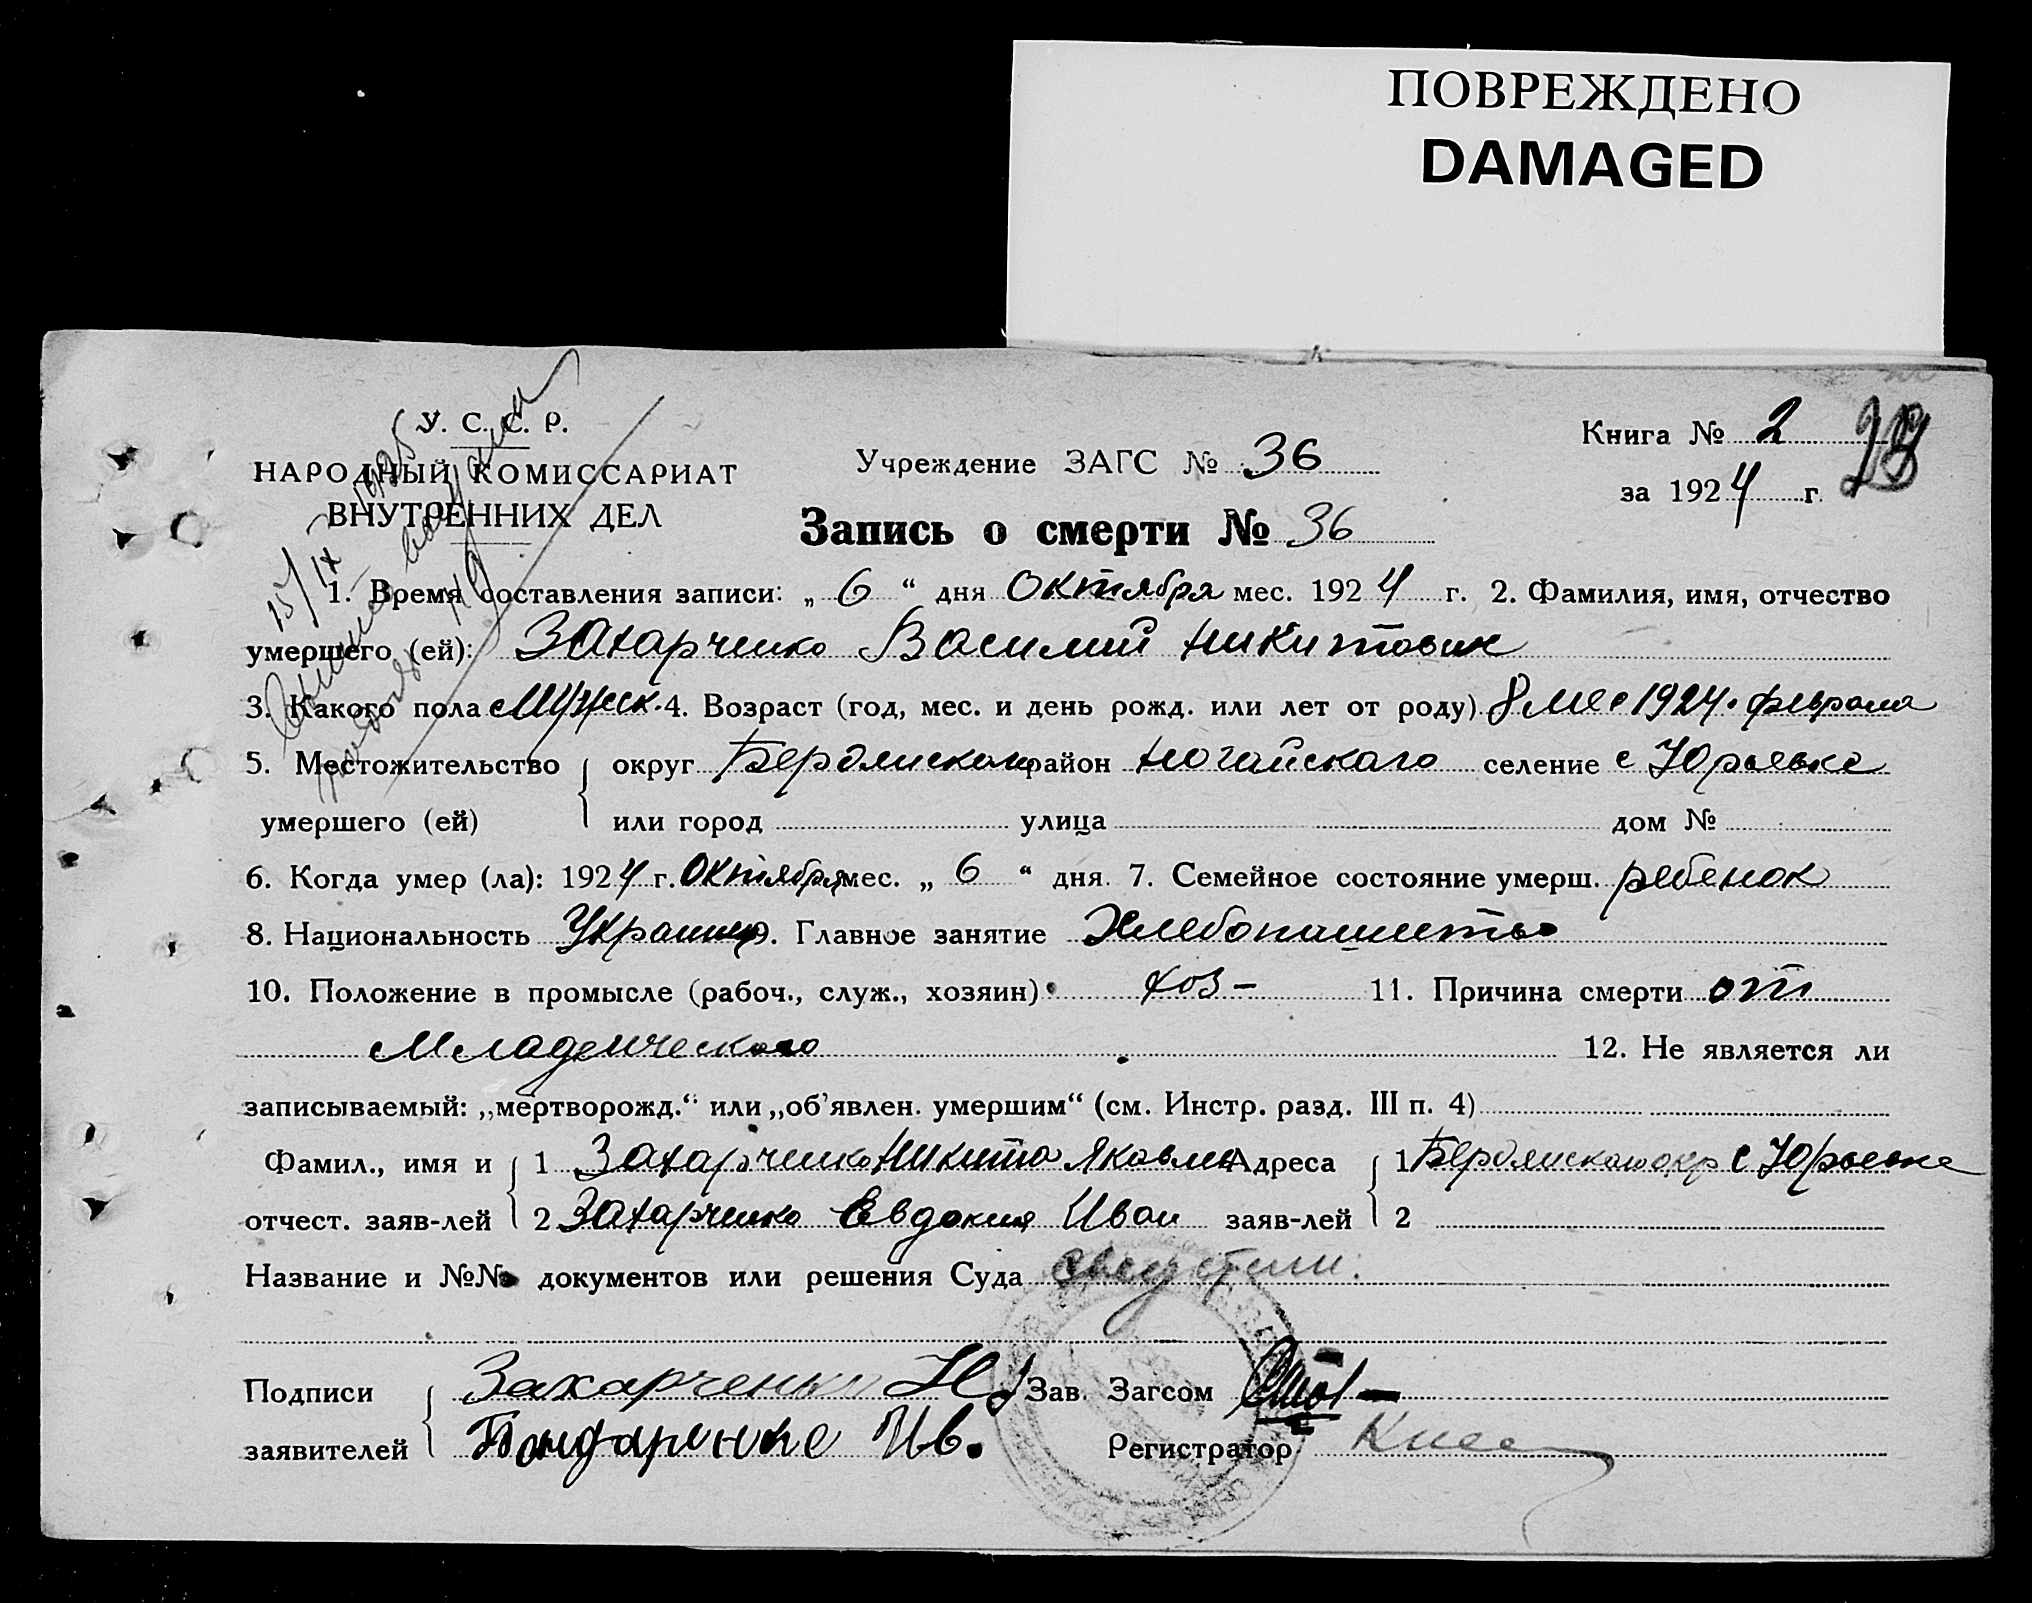 ПОВРЕЖДЕНО
DAMAGED
У. С. С. Р.
НАРОДНЫЙ КОМИССАРИАТ
ВНУТРЕННИХ ДЕЛ
Учреждение ЗАГС № 36
Книга № 2
за 1924 г.
28
Запись о смерти № 36
15/IX 1925
1. Время составления записи: „ 6 “ дня Октября мес. 1924 г. 2. Фамилия, имя, отчество
умершего (ей): Захарченко Василий Никитович
3. Какого пола Мужск. 4. Возраст (год, мес. и день рожд. или лет от роду) 8 мес 1924. февраля
5. Местожительство округ Бердянский район Ногайского селение с Юрьевке
умершего (ей) или город улица дом №
6. Когда умер (ла): 1924 г. Октября мес. „ 6 “ дня. 7. Семейное состояние умерш. ребенок
8. Национальность Украинец 9. Главное занятие Хлебопашество
10. Положение в промысле (рабоч., служ., хозяин) хоз- 11. Причина смерти от
Младенческого 12. Не является ли
записываемый: „мертворожд.“ или „об’явлен. умершим“ (см. Инстр. разд. III п. 4)
Фамил., имя и 1 Захарченко Никита Яковлев Адреса 1 Бердянского окр с Юрьевке
отчест. заяв-лей 2 Захарченко Евдокия Иван заяв-лей 2
Название и №№ документов или решения Суда
Подписи Захарченко Н Зав. Загсом
заявителей Ив. Регистратор